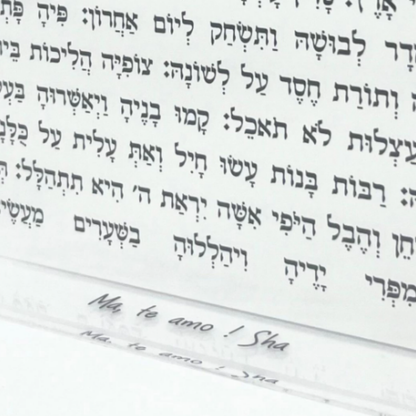 אָרֶץ:
הָדָר לְבוּשָׁהּ וַתִּשְׂחַק לְיוֹם אַחֲרוֹן: פִּיהָ
וְתוֹרַת חֶסֶד עַל לְשׁוֹנָהּ: צוֹפִיָּה הֲלִיכוֹת
עַצְלוּת לֹא תֹאכֵל: קָמוּ בָנֶיהָ וַיְאַשְּׁרוּהָ
רַבּוֹת בָּנוֹת עָשׂוּ חָיִל וְאַתְּ עָלִית עַל
וְהֶבֶל הַיֹּפִי אִשָּׁה יִרְאַת ה' הִיא תִתְהַלָּל:
מִפְּרִי יָדֶיהָ וִיהַלְלוּהָ בַשְּׁעָרִים מַעֲשֶׂיהָ
Ma, te amo ! Sha